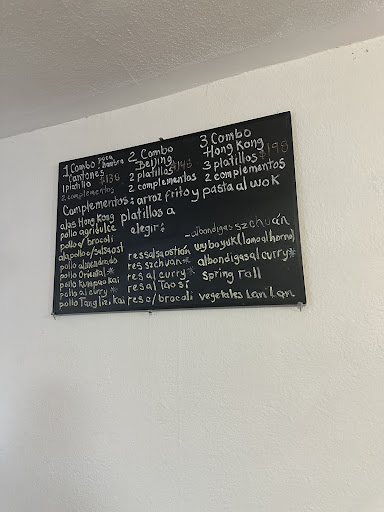 1 Combo poca hambre
Cantones
1 platillo $135
2 complementos
2 Combo
Beijing
2 platillos $145
2 complementos
3 Combo
Hong Kong
3 platillos $195
2 complementos
Complementos: arroz frito y pasta al wok
platillos a
elegir:
alas Hong Kong
pollo agridulce
pollo e/ brocoli
ala pollo e/salsaost
pollo almendrado
pollo Oriental*
pollo Kumpao kai
pollo al curry *
pollo Tang Tzi kai
res salsa ostión
res szchuan*
res al curry*
res al Tao si
res e/ brocoli
-albondigas szchuán
albondigas al curry*
spring rall
vegetales Lan Lan